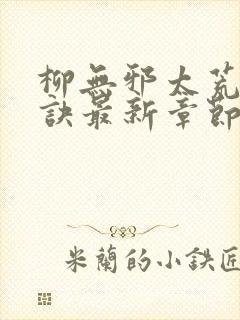 柳無邪太荒
訣最新章節
米蘭的小鉄匠